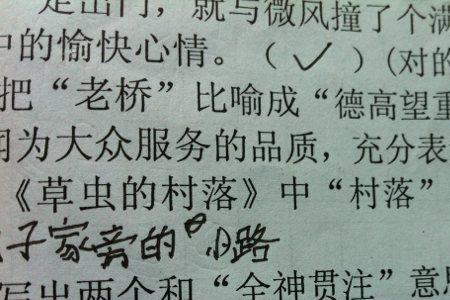 走出门，就与微风撞了个满
中的愉快心情。（✓）(对的
把“老桥”比喻成“德高望重
用为大众服务的品质，充分表
《草虫的村落》中“村落”
子家旁的小路
写出两个和“全神贯注”意思